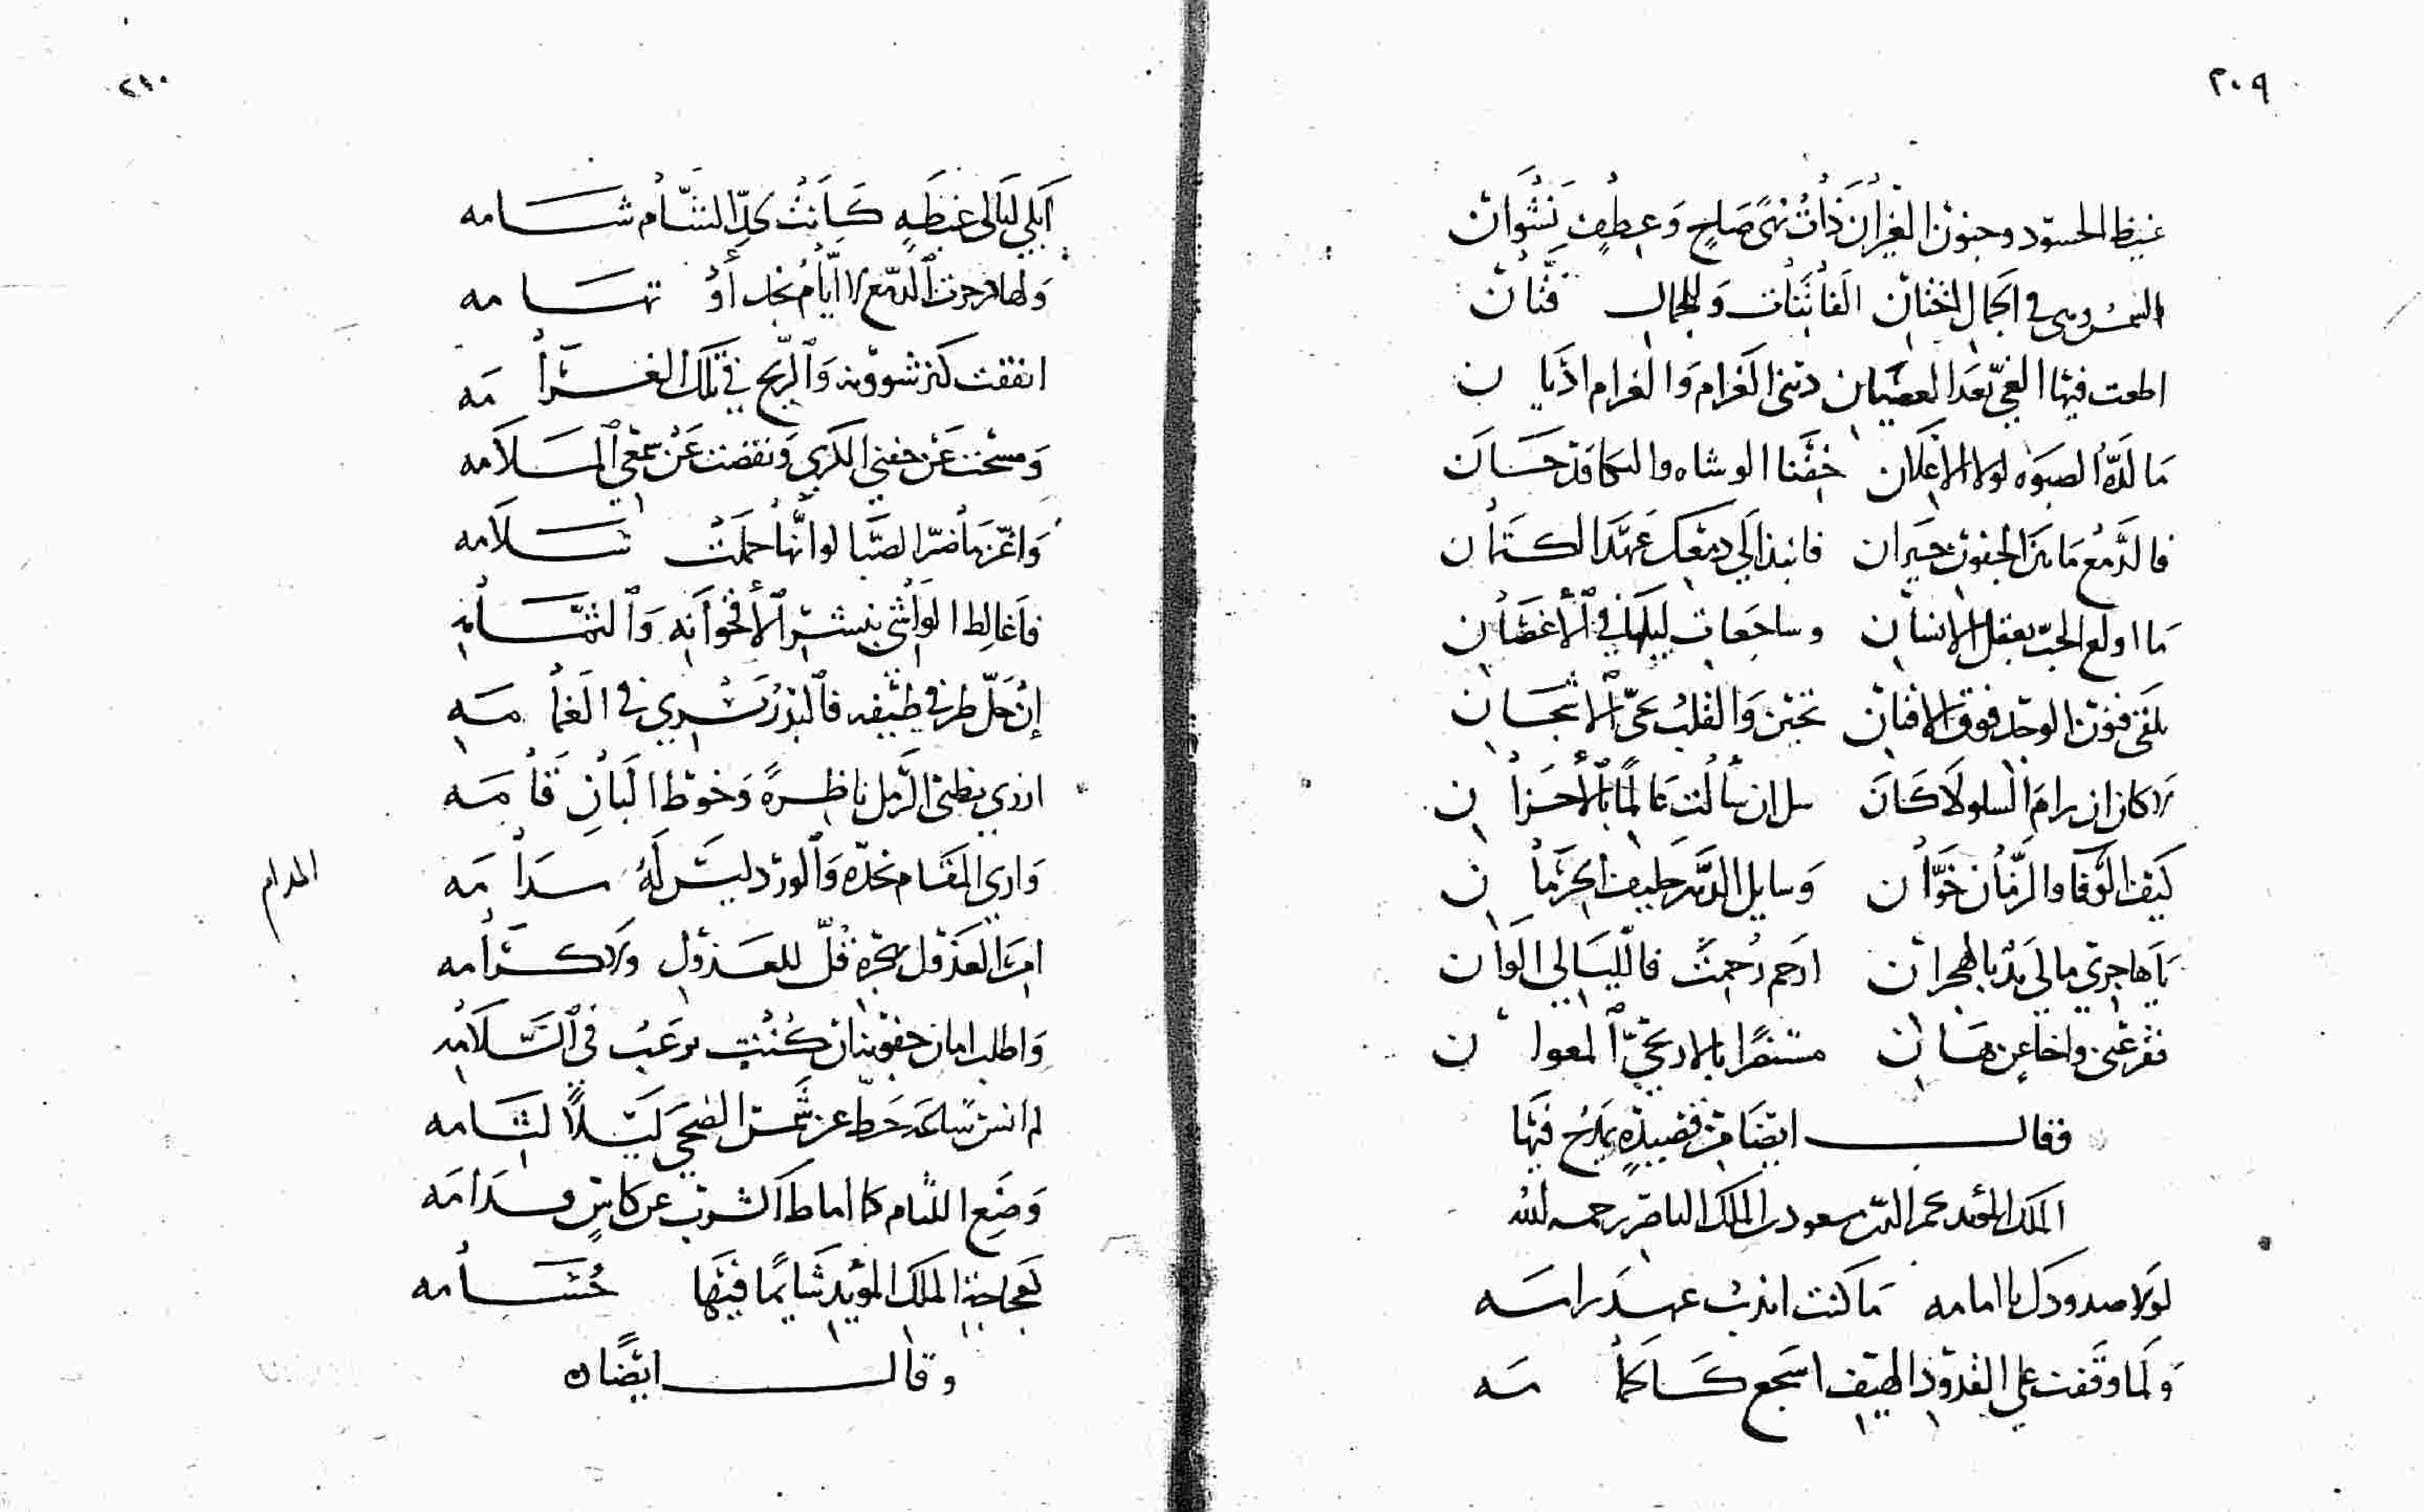 ٢٠٩
غيظ الحسود وجنون الغيران ذات نهًى صاحٍ وعطفٍ نشوان
في الجمال الفتان الفاتنات وللجمال فتان
اطعت فيها الغي بعد العصيان ديني الغرام والغرام اديان
ما لذة الصبوه لولا الاعلان خفنا الوشاه والبكا قد حسان
فالدمع ما بين الجفون حيران فانبذ الي دمعك عهد الكتمان
ما اولع الحب بعقل الانسان وساجعات ليلها في الأغصان
تلقى فنون الوجد فوق الافنان تحين والقلب عمي الاشجان
لا كان ان رام السلو لا كان سل ان سألت عالمًا بالأحزان
كيف الوفا والزمان خوان وسايل الدهر حليف الحرمان
يا هاجري مالي يد بالهجران ارحم رحمت فالليالي الوان
مستنصرًا بالاريحي المعوان
فقال ايضًا من قصيدةٍ يمدح فيها
الملك المؤيد نجم الدين مسعود بن الملك الناصر رحمه الله
لولا صدودك يا امامه ما كنت اندب عهد رامه
ولما وقفت على القدود الهيف اسجع كالحمامه
٢١٠
أبكي ليالي غبطةٍ كانت بخد الشام شامه
ولها ذخرت الدمع لا أيام نجد أو تهامه
انفقت كنز شوونه والربح في تلك الغرامه
ومسحت عن جفني الكري ونفضت عن سمعي الملامه
واعز ما ضر الصبا لو انها حملت سلامه
فاغالط الواشي بنشر الأقحوانه والثمامه
إن حل طرفي طيفه فالبدر يسري في الغمامه
ازري بظبي الرمل ناظرةً وخوط البان قامه
واري المقام بخده والورد ليس له سدامه
المدام
امر العذول بهجره قل للعذول ولا كرامه
واطلب امان جفونه ان كنت ترغب في السلامه
لم انس ساعة حط عن شمس الضحى ليلًا لثامه
وضع اللثام كما اماط الشرب عن كاسٍ فدامه
كعجاجة الملك المؤيد شايمًا فيها حسامه
وقال ايضًا